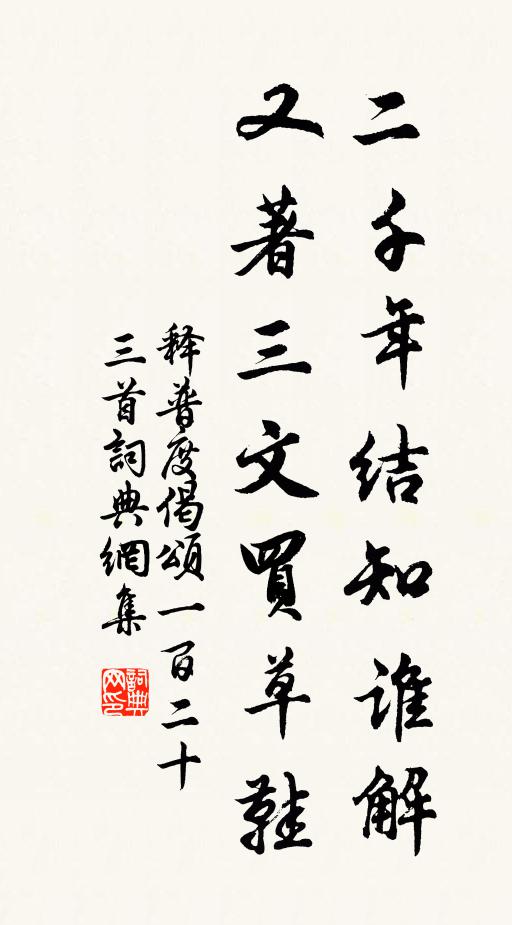 二千年结知誰解
又著三文買草鞋
释普度偈頌一百二十
三首詞典網集
詞典网印